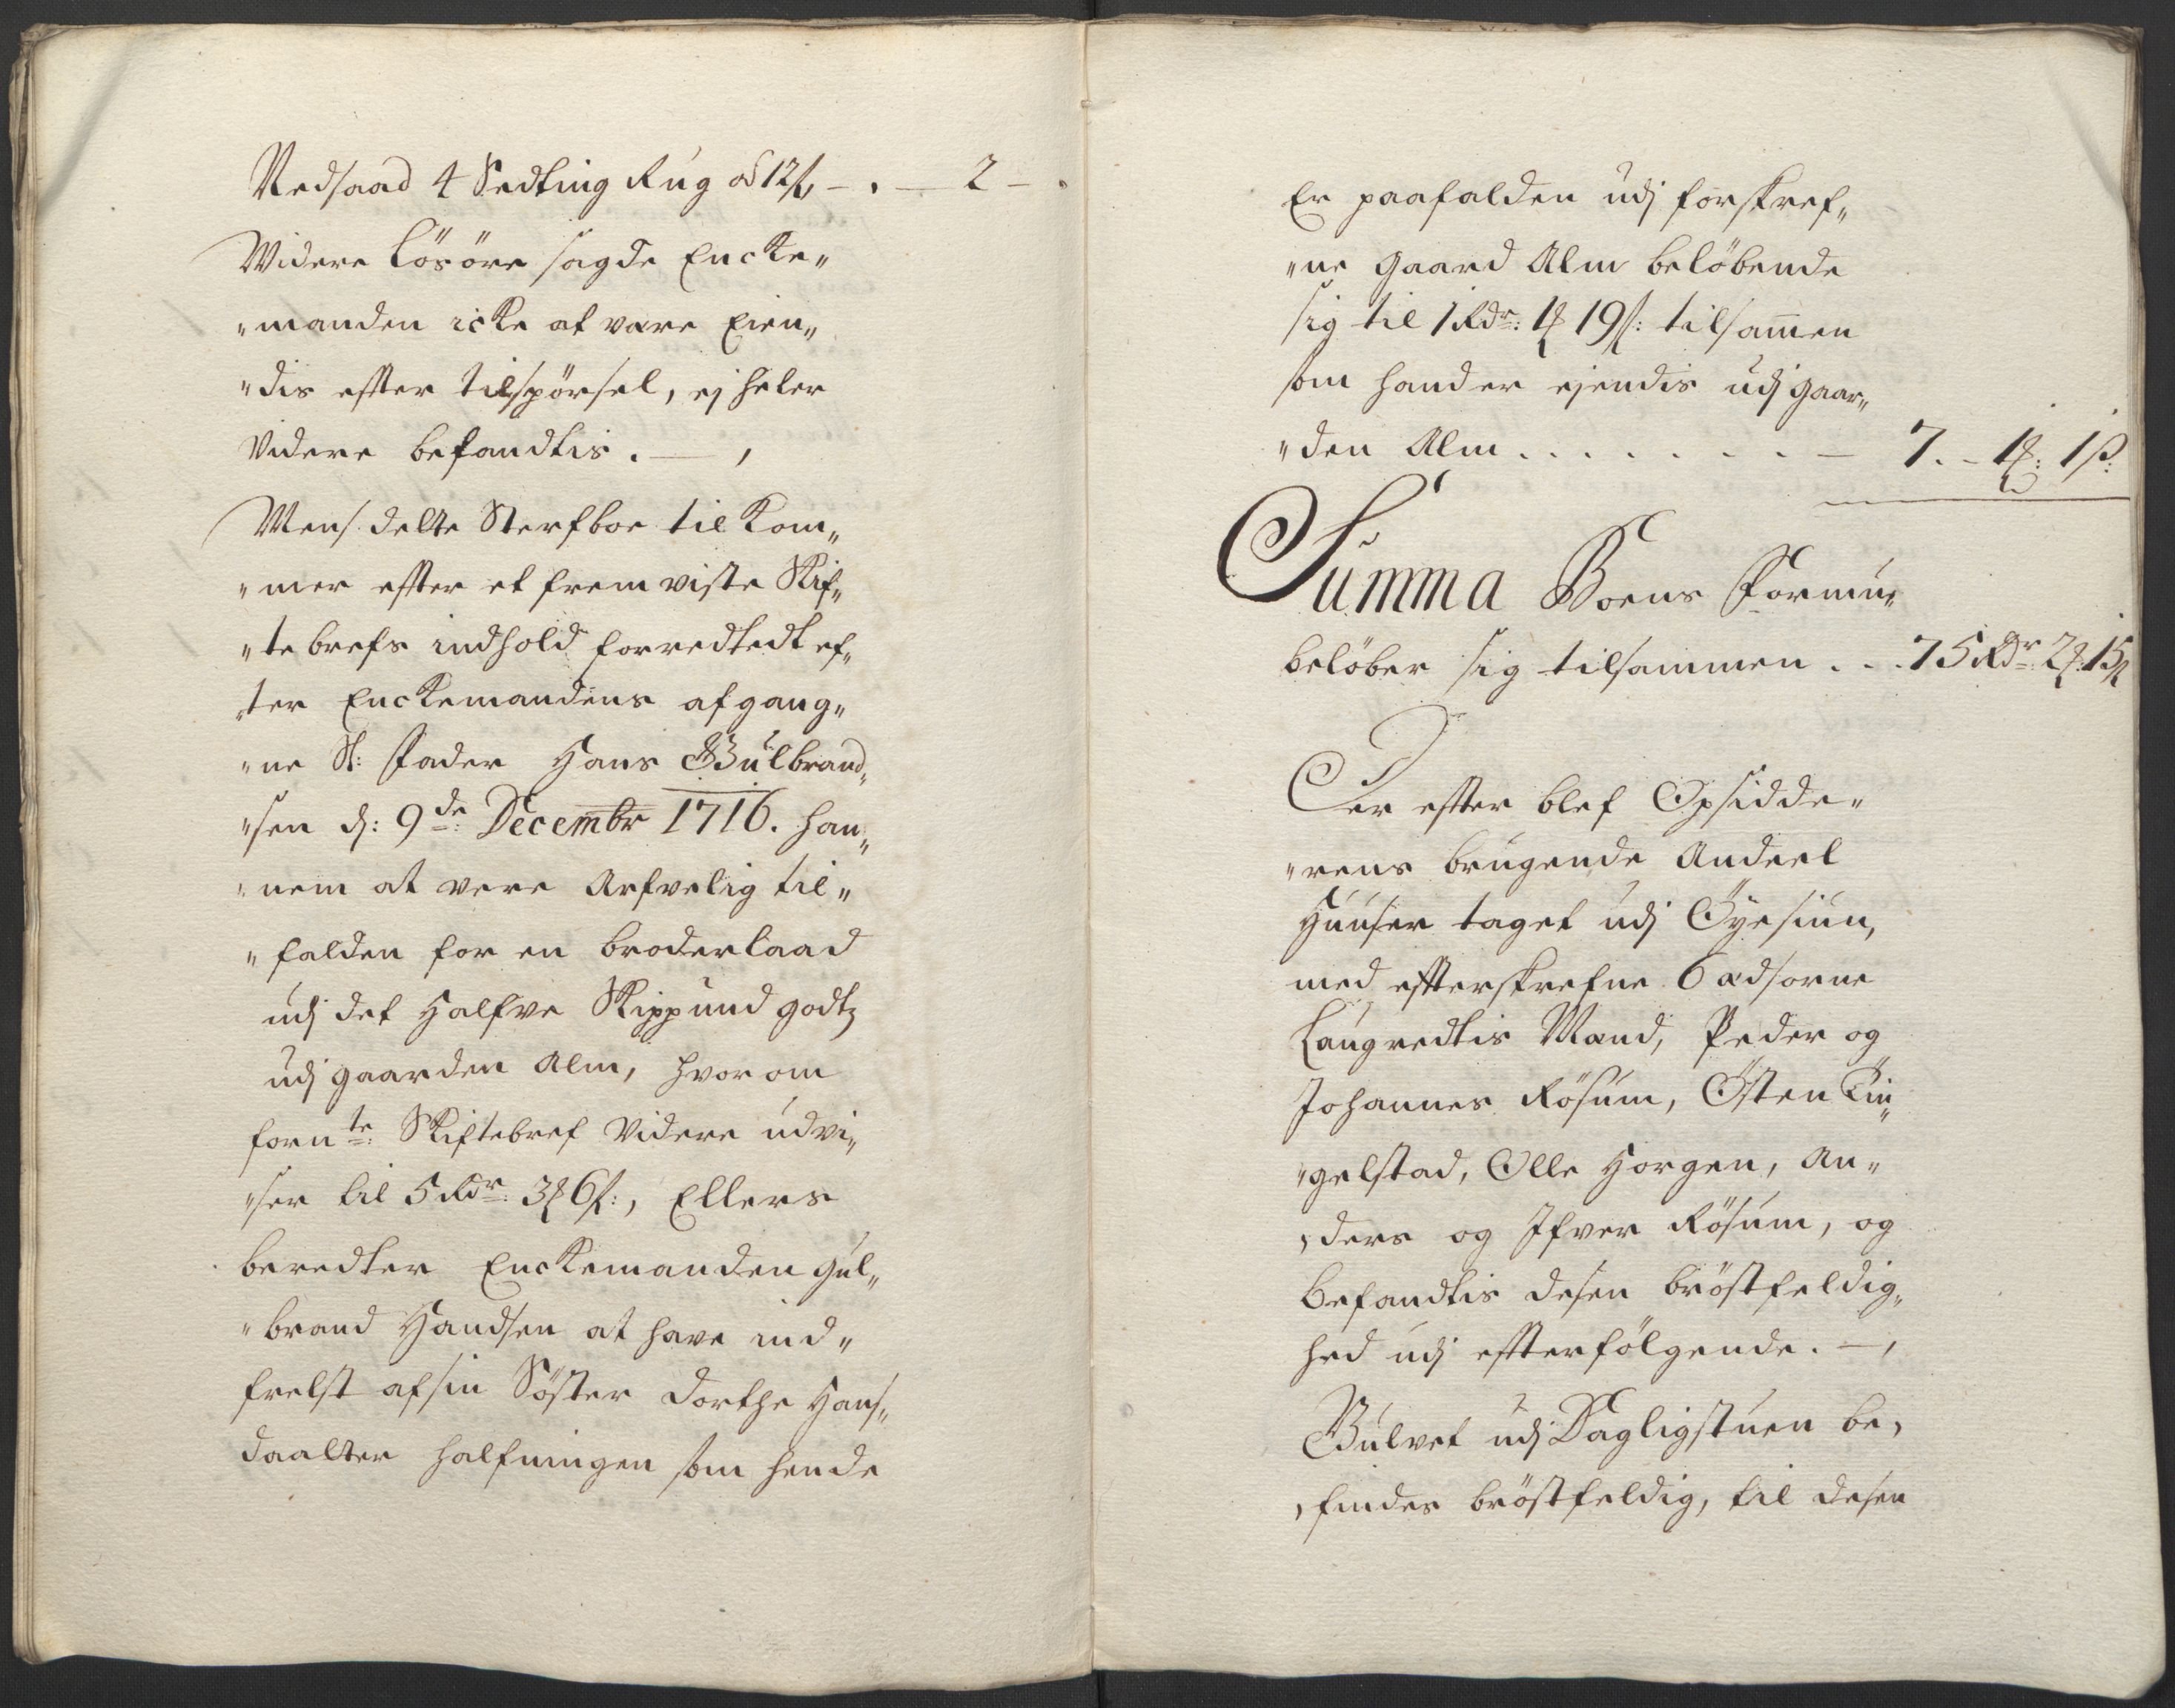 Nedsaad 4 Sedting Rug à 12ß, – . — 2 – .
Widere Lösöre sagde Encke„
„manden icke at være Eien„
„dis effter tilspörsel, ej heler
Videre befandtis. — ,
Mens delte Sterfboe til kom„
„mer effter et frem viste Skif„
„te brefs indhold forredtedt ef„
„ter Enckemandens afgang„
„ne Sl: Fader Hans Gulbrand„
„sen d: 9de: Decembr 1716. han„
„nem at vere Arfvelig til„
„falden for en broderlaad
udj det Halfve Skippund godtz
udj gaarden Alm, hvor om
fornte: Skiftebref Videre udvi„
„ser til 5 Rdr: 3 ₰ 6ß:, Ellers
beredter Enckemanden Gul„
„brand Handsen at have ind„
frelst af sin Söster Dorthe Hans„
daalter halfningen som hende
Er paafalden udj forskref„
„ne gaard Alm belöbende
sig til 1 Rdr: 1 ₰ 19ß: tilsam̅en
som hand er ejendis udj gaar„
„den Alm . . . . . . . — 7. – 1 ₰: 1ß:
Summa Boens Formue
belöber sig tilsammen . . . 75 Rdr: 2 ₰: 15ß
Der effter blef Opsidde„
„rens brugende Andeel
Huuser taget udj Öyesiun,
med effterskrefne 6 ædsorne
Laugredtis Mænd, Peder og
Johannes Rösum, Östen Rin„
„gelstad, Olle Horgen, An„
„ders og Ifver Rösum, og
befandtis desen bröstfeldig„
hed udj effterfölgende. — ,
Gulvet udj Dagligstuen be„
„findes bröstfeldig, til desen